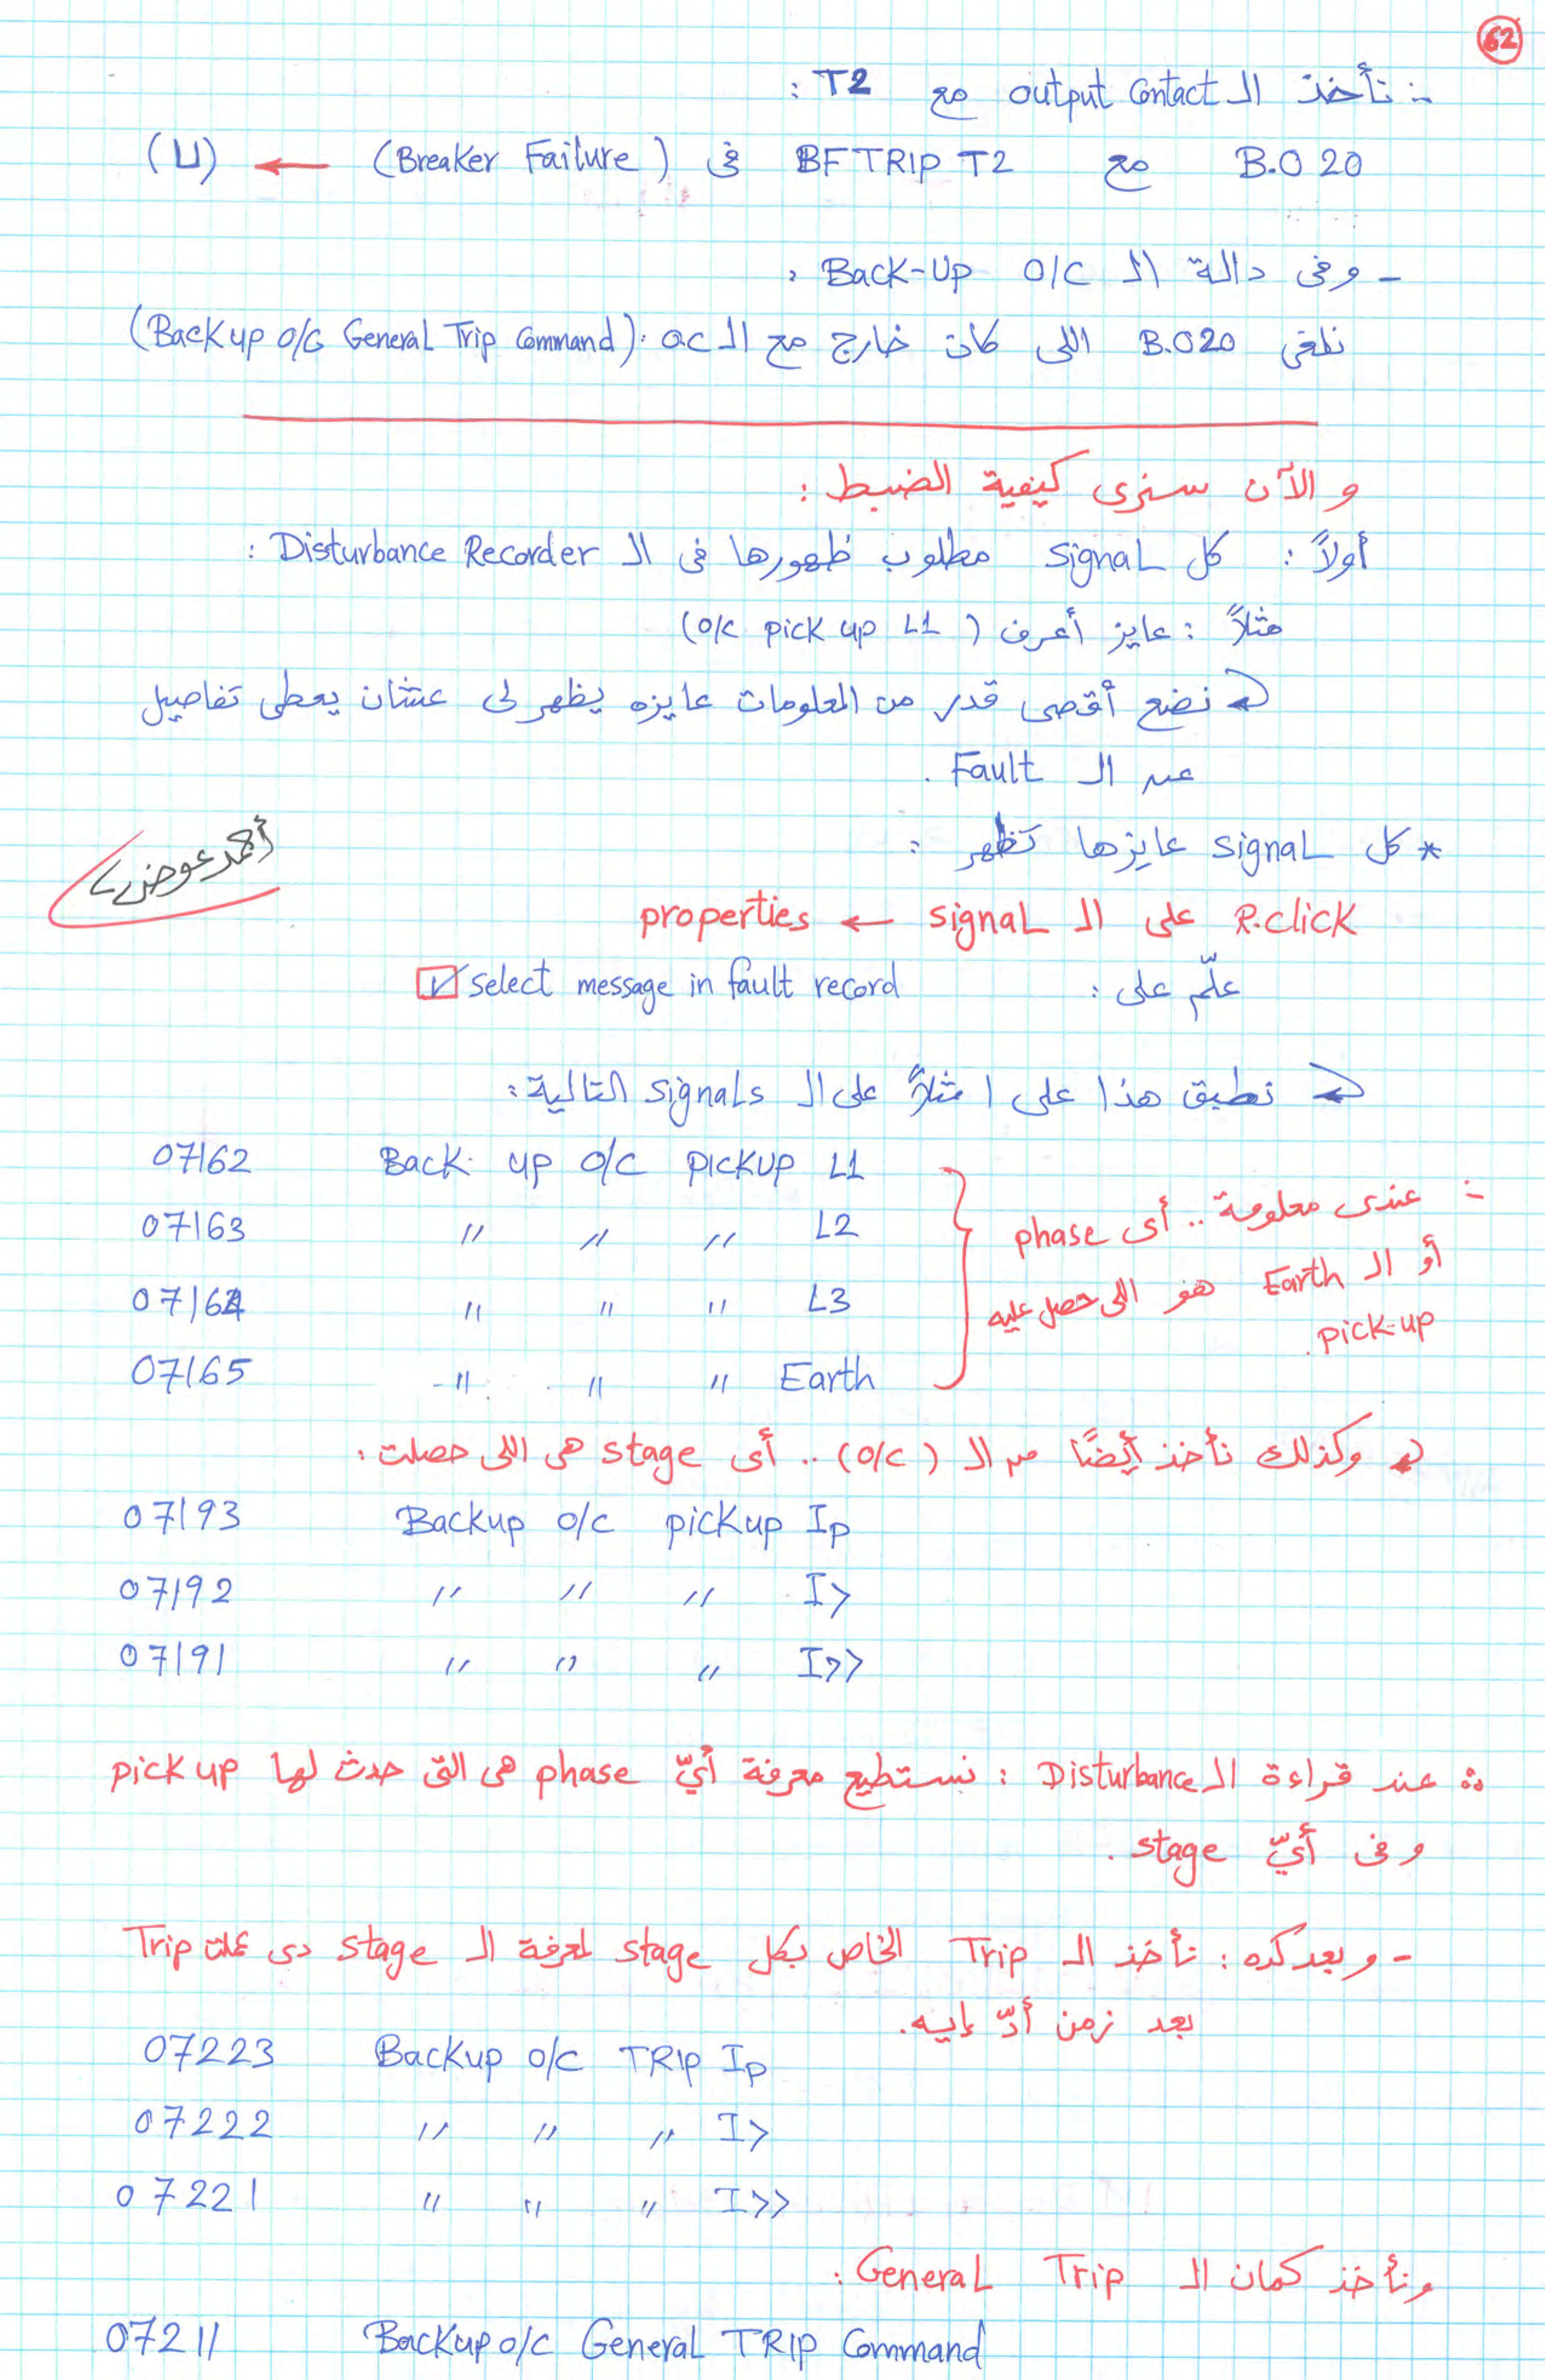 62
∴ نأخذ الـ output Contact مع T2 :
B.O 20 مع BF TRIP T2 فى (Breaker Failure) ← (U)
- وفى دالة الـ Back-Up O/C :
نلغى B.O20 اللى كان خارج مع الـ oc. (Backup o/c General Trip Command)
و الآن سنرى كيفية الضبط :
أولاً : كل signal مطلوب ظهورها فى الـ Disturbance Recorder :
مثلاً : عايز أعرف (o/c pick up L1)
نضع أقصى قدر من المعلومات عايزه يظهر لى عشان يعطى تفاصيل
عن الـ Fault .
* كل signal عايزها تظهر :
أحمد عوض
R.click على الـ signal ← properties
علّم على : ☑ select message in fault record
نطبق هذا على ا مثلاً على الـ signals التالية :
07162 Back up o/c pickup L1
07163 " " " L2
07164 " " " L3
07165 " " " Earth
∴ عندى معلومة .. أى phase
أو الـ Earth هو اللى حصل عليه
pick-up .
وكذلك نأخذ أيضًا من الـ (o/c) .. أى stage هى اللى حصلت :
07193 Backup o/c pickup Ip
07192 " " " I>
07191 " " " I>>
∴ عند قراءة الـ Disturbance : نستطيع معرفة أيّ phase هى التى حدث لها pick up
وفى أيّ stage .
- وبعد كده : نأخذ الـ Trip الخاص بكل stage لمعرفة الـ stage دى عملت Trip
بعد زمن أدّ إيه.
07223 Backup o/c TRIP Ip
07222 " " " I>
07221 " " " I>>
ونأخذ كمان الـ General Trip :
07211 Backup o/c General TRIP Command